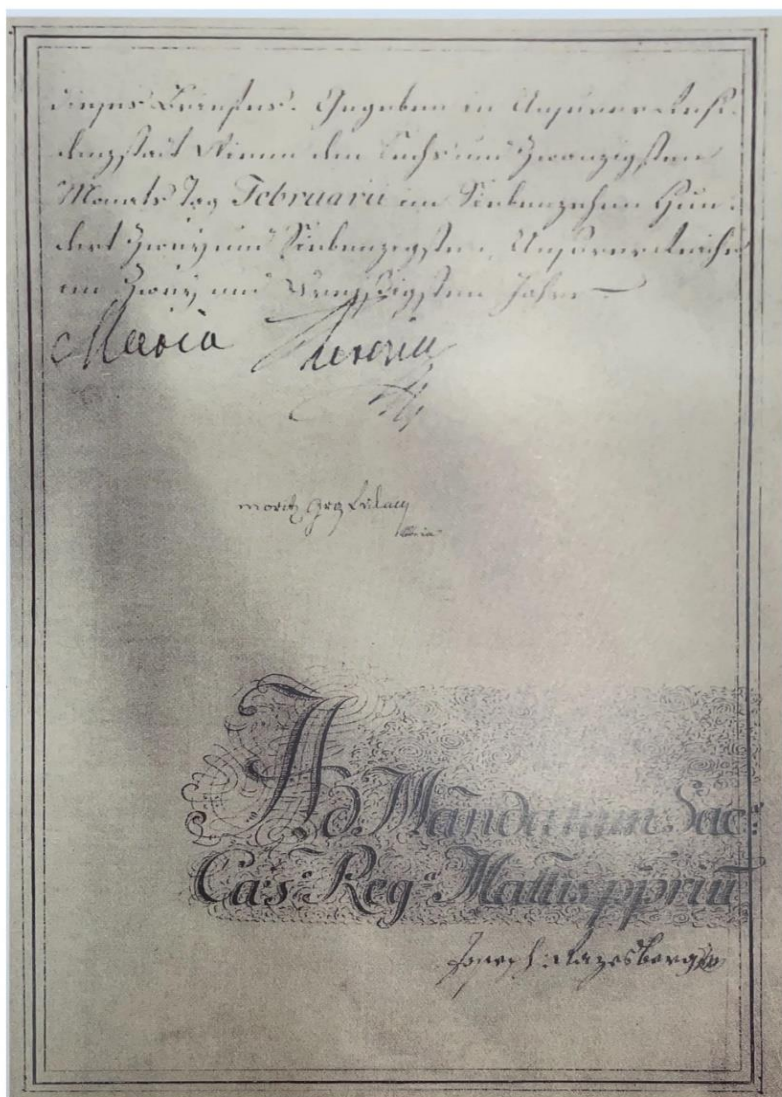 Gegeben in Unserer Resi-
denzstadt Wienn den Sechs und Zwanzigsten
Monats Tag Februarii im Siebenzehen Hun-
dert Zwey und Siebenzigsten, Unserer Reiche
im Zwey und Dreyßigsten Jahre
Maria Theresia
Ad Mandatum Sac:
Cæs:ᵃ Regᵃ Mattis ppriũ
Joseph